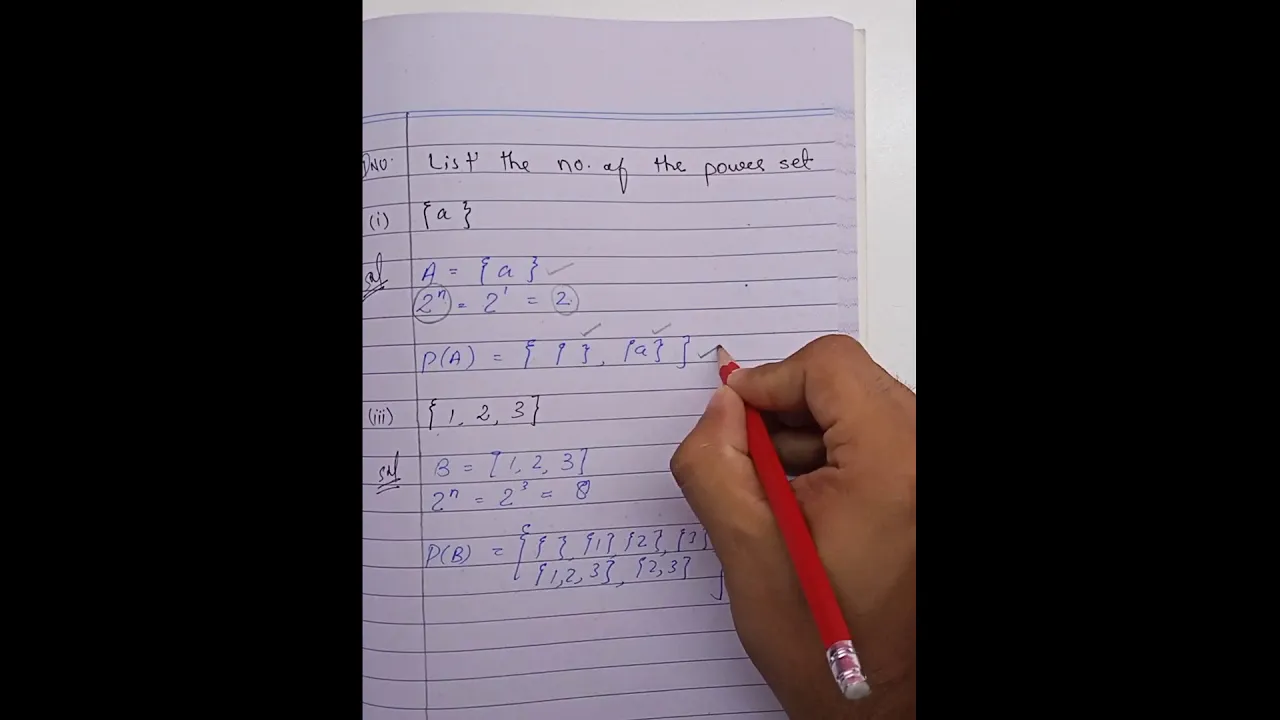 NO. List the no. of the power set
(i) {a}
Sol A = {a} ✓
2ⁿ = 2¹ = 2
P(A) = { { }, {a} } ✓
(iii) {1, 2, 3}
Sol B = {1, 2, 3}
2ⁿ = 2³ = 8
P(B) = { { }, {1} {2}, {3}
{1,2,3}, {2,3} }